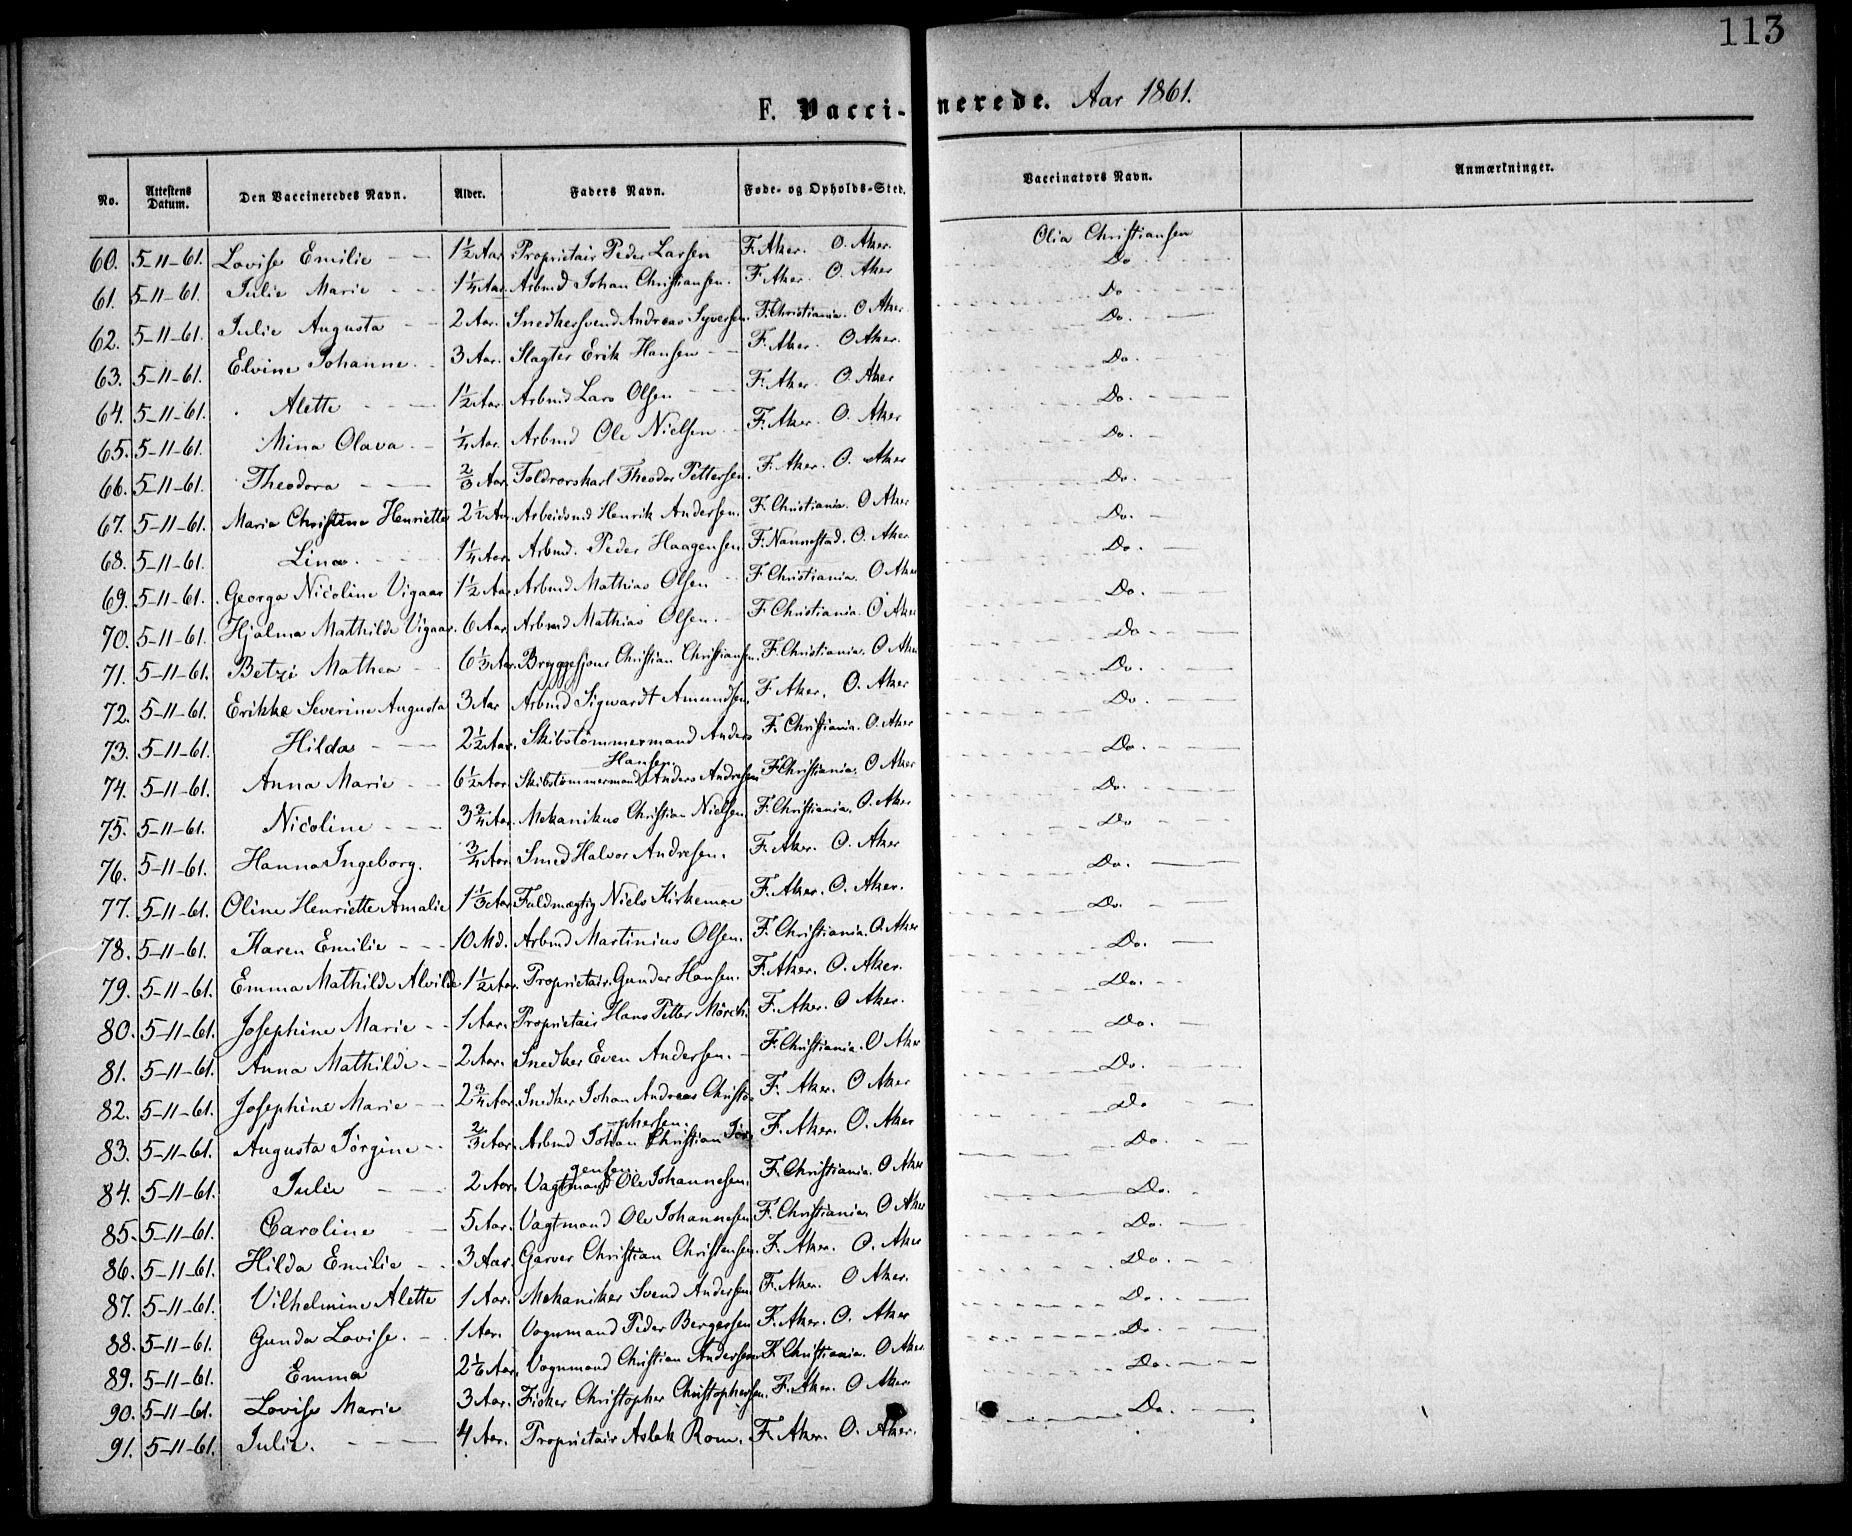 113
F. Vaccinerede. Aar 1861.
No. Attestens Datum. Den Vaccineredes Navn. Alder. Faders Navn. Føde- og Opholds-Sted. Vaccinators Navn. Anmærkninger.
60. 5-11-61. Lovise Emilie 1½ Aar Proprietair Peder Larsen F. Aker. O. Aker. Olia Christiansen
61. 5-11-61. Julie Marie 1¼ Aar. Arbmd Johan Christiansen. F. Aker. O. Aker Do
62. 5-11-61. Julie Augusta 2 Aar. Snedkersvend Andreas Syversen. F. Christiania. O Aker. Do.
63. 5-11-61. Elvine Johanne. 3 Aar. Slagter Erik Hansen F. Aker. O Aker. Do.
64. 5-11-61. Alette 1½ Aar Arbmd Lars Olsen F. Aker. O. Aker Do.
65. 5-11-61. Mina Olava. ¼ Aar. Arbmd Ole Nielsen F. Aker. O. Aker Do.
66. 5-11-61. Theodora ⅔ Aar. Toldrorskarl Theodor Pettersen. F. Aker. O. Aker Do.
67. 5-11-61. Marie Christine Henriette 2½ Aar. Arbeidsmd Henrik Andersen. F. Christiania. O Aker Do.
68. 5-11-61. Lina. 1¼ Aar. Arbmd. Peder Haagensen F. Nannestad. O. Aker. Do.
69. 5-11-61. Georga Nicoline Vigaar 1½ Aar Arbmd Mathias Olsen F. Christiania. O Aker Do.
70. 5-11-61. Hjalma Mathilde Vigaar. 6 Aar. Arbmd Mathias Olsen. F. Christiania. O Aker Do.
71. 5-11-61. Betzi Mathea 6⅓ Aar. Bryggesjouer Christian Christiansen. F. Christiania. O Aker Do
72. 5-11-61. Erikke Severine Augusta 3 Aar Arbmd Sigwardt Amundsen. F. Aker. O. Aker Do.
73. 5-11-61. Hilda 2½ Aar. Skibstømmermand Anders Hansen. F. Christiania. O. Aker Do.
74. 5-11-61. Anna Marie 6½ Aar. Skibstømmermand Anders Andresen F. Christiania. O Aker Do.
75. 5-11-61. Nicoline 3¾ Aar. Mekanikus Christian Nielsen F. Christiania. O. Aker Do.
76. 5-11-61. Hanna Ingeborg. ¾ Aar. Smed Halvor Andresen. F. Aker. O. Aker Do
77. 5-11-61. Oline Henriette Amalie 1⅓ Aar Fuldmægtig Niels Kirkemoe F. Aker. O. Aker. Do.
78. 5-11-61. Karen Emilie 10 Md. Arbmd Martinius Olsen. F. Christiania. O. Aker Do.
79. 5-11-61. Emma Mathilde Alvilde 1½ Aar. Proprietair. Gunder Hansen. F. Aker. O. Aker. Do.
80. 5-11-61. Josephine Marie 1 Aar. Proprietair Hans Petter Mørch. F. Aker. O Aker. Do.
81. 5-11-61. Anna Mathilde 2 Aar. Snedker Even Andersen. F. Christiania. O Aker Do.
82. 5-11-61. Josephine Marie 2¾ Aar. Snedker Johan Andreas Christophersen. F. Aker. O Aker Do.
83. 5-11-61. Augusta Jørgine ⅔ Aar. Arbmd Johan Christian Jørgensen. F. Aker. O. Aker Do
84. 5-11-61. Julie 2 Aar. Vagtmand Ole Johannesen. F. Christiania. O Aker Do.
85. 5-11-61. Caroline 5 Aar. Vagtmand Ole Johannesen F. Christiania. O Aker Do.
86. 5-11-61. Hilda Emilie 3 Aar. Garver Christian Christensen. F. Aker. O. Aker Do.
87. 5-11-61. Vilhelmine Alette 1 Aar. Mekaniker Svend Andersen F. Aker. O Aker. Do.
88. 5-11-61. Gunda Lovise. 1 Aar. Vognmand Peder Bergersen F. Aker. O. Aker Do.
89. 5-11-61. Emma 2⅙ Aar. Vognmand Christian Andersen. F. Christiania. O Aker. Do.
90. 5-11-61. Lovise Marie 3 Aar. Fisker Christopher Christophersen. F. Aker. O Aker. Do.
91. 5-11-61. Julie. 4 Aar. Proprietair Aslak Rom. F. Aker. O. Aker. Do.